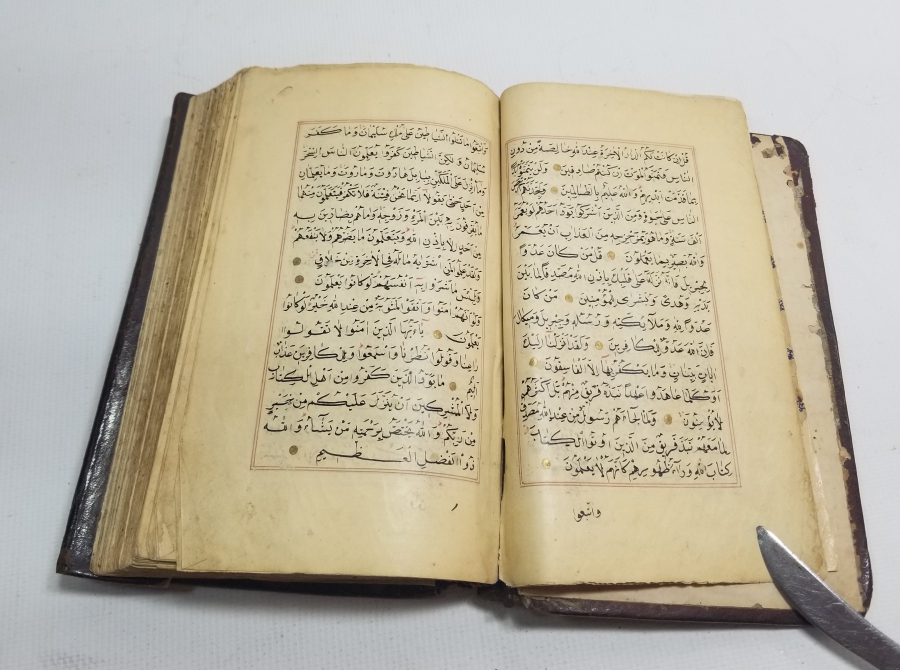 قل ان كانت لكم الدار الاخرة عند الله خالصة من دون
الناس فتمنوا الموت ان كنتم صادقين ولن يتمنوه ابدا
بما قدمت ايديهم والله عليم بالظالمين ولتجدنهم احرص
الناس على حيوة ومن الذين اشركوا يود احدهم لو يعمر
الف سنة وما هو بمزحزحه من العذاب ان يعمر
والله بصير بما يعملون قل من كان عدوا
لجبريل فانه نزله على قلبك باذن الله مصدقا لما بين
يديه وهدى وبشرى للمؤمنين من كان
عدوا لله وملائكته ورسله وجبريل وميكال
فان الله عدو للكافرين ولقد انزلنا اليك
ايات بينات وما يكفر بها الا الفاسقون
اوكلما عاهدوا عهدا نبذه فريق منهم بل اكثرهم
لا يؤمنون ولما جاءهم رسول من عند الله مصدق
لما معهم نبذ فريق من الذين اوتوا الكتاب
كتاب الله وراء ظهورهم كانهم لا يعلمون
واتبعوا
واتبعوا ما تتلوا الشياطين على ملك سليمان وما كفر
سليمان ولكن الشياطين كفروا يعلمون الناس السحر
وما انزل على الملكين ببابل هاروت وماروت وما يعلمان
من احد حتى يقولا انما نحن فتنة فلا تكفر فيتعلمون منهما
ما يفرقون به بين المرء وزوجه وما هم بضارين به
من احد الا باذن الله ويتعلمون ما يضرهم ولا ينفعهم
ولقد علموا لمن اشتريه ما له في الاخرة من خلاق
ولبئس ما شروا به انفسهم لو كانوا يعلمون
ولو انهم امنوا واتقوا لمثوبة من عند الله خير لو كانوا
يعلمون يا ايها الذين امنوا لا تقولوا
راعنا وقولوا انظرنا واسمعوا وللكافرين عذاب
اليم ما يود الذين كفروا من اهل الكتاب
ولا المشركين ان ينزل عليكم من خير
من ربكم والله يختص برحمته من يشاء والله
ذوا الفضل العظيم